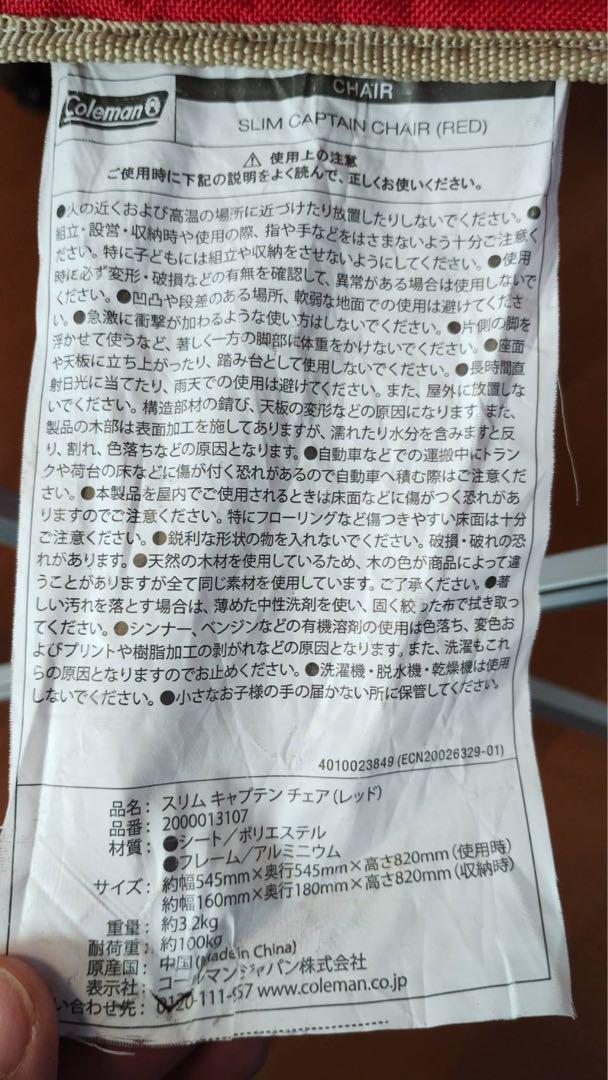 CHAIR
Coleman
SLIM CAPTAIN CHAIR (RED)
⚠ 使用上の注意
ご使用時に下記の説明をよく読んで、正しくお使いください。
●火の近くおよび高温の場所に近づけたり放置したりしないでください。●
組立・設営・収納時や使用の際、指や手などをはさまないよう十分ご注意く
ださい。特に子どもには組立や収納をさせないようにしてください。●使用
時に必ず変形・破損などの有無を確認して、異常がある場合は使用しないで
ください。●凹凸や段差のある場所、軟弱な地面での使用は避けてくださ
い。●急激に衝撃が加わるような使い方はしないでください。●片側の脚を
浮かせて使うなど、著しく一方の脚部に体重をかけないでください。●座面
や天板に立ち上がったり、踏み台として使用しないでください。●長時間直
射日光に当てたり、雨天での使用は避けてください。また、屋外に放置しな
いでください。構造部材の錆び、天板の変形などの原因になります。また、
製品の木部は表面加工を施してありますが、濡れたり水分を含みますと反
り、割れ、色落ちなどの原因となります。●自動車などでの運搬中にトラン
クや荷台の床などに傷が付く恐れがあるので自動車へ積む際はご注意くだ
さい。●本製品を屋内でご使用されるときは床面などに傷がつく恐れがあ
りますのでご注意ください。特にフローリングなど傷つきやすい床面は十分
ご注意ください。●鋭利な形状の物を入れないでください。破損・破れの恐
れがあります。●天然の木材を使用しているため、木の色が商品によって違
うことがありますが全て同じ素材を使用しています。ご了承ください。●著
しい汚れを落とす場合は、薄めた中性洗剤を使い、固く絞った布で拭き取っ
てください。●シンナー、ベンジンなどの有機溶剤の使用は色落ち、変色お
よびプリントや樹脂加工の剥がれなどの原因となります。また、洗濯もこれ
らの原因となりますのでお止めください。●洗濯機・脱水機・乾燥機は使用
しないでください。●小さなお子様の手の届かない所に保管してください。
4010023849 (ECN20026329-01)
品名：スリム キャプテン チェア（レッド）
品番：2000013107
材質：●シート／ポリエステル
●フレーム／アルミニウム
サイズ：約幅545mm×奥行545mm×高さ820mm（使用時）
約幅160mm×奥行180mm×高さ820mm（収納時）
重量：約3.2kg
耐荷重：約100kg
原産国：中国(Made in China)
表示社：コールマンジャパン株式会社
い合わせ先：0120-111-957 www.coleman.co.jp